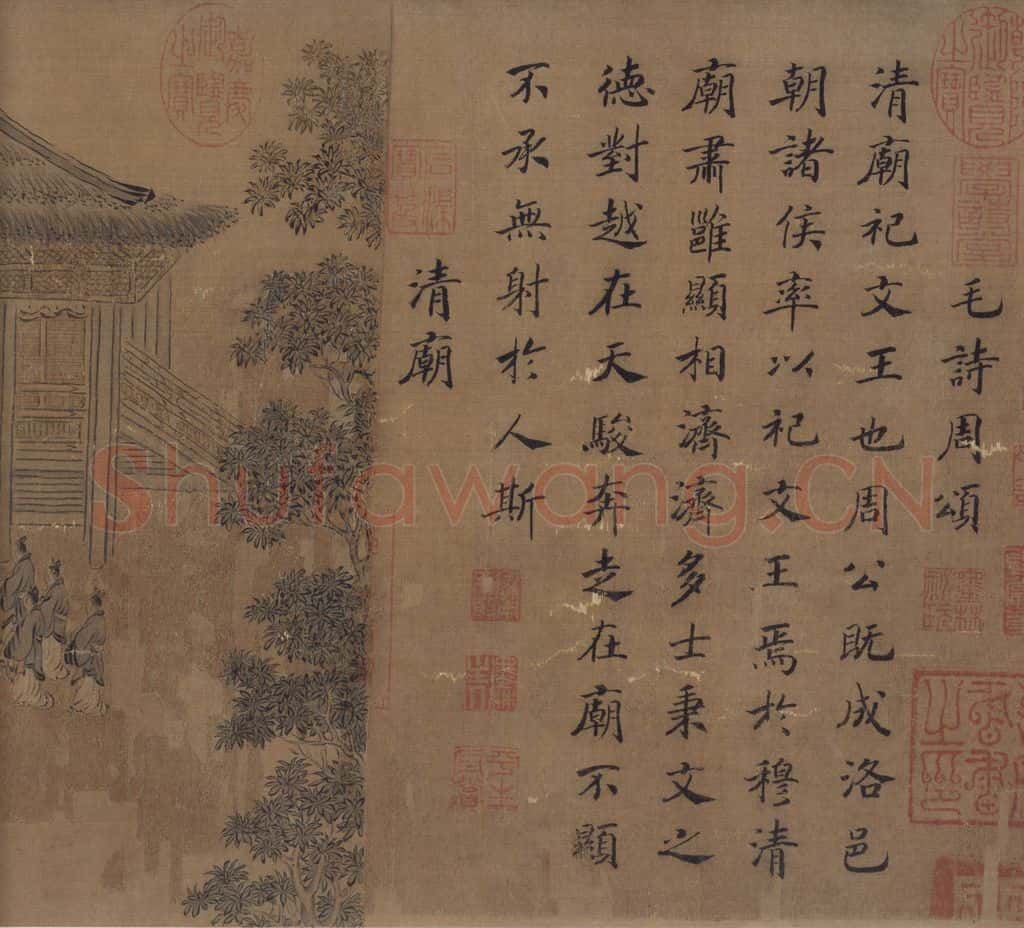 毛詩周頌
清廟祀文王也周公既成洛邑
朝諸侯率以祀文王焉於穆清
廟肅雝顯相濟濟多士秉文之
德對越在天駿奔走在廟不顯
不承無射於人斯
清廟
Shufawang.CN